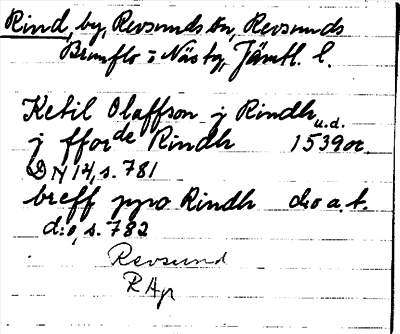 Rind, by, Revsunds sn, Revsunds
Brunflo o Näs tg, Jämtl. l.
Ketil Olaffson j Rindh u.d.
j fforde Rindh 1539 or.
DN 14, s. 781
breff ppo Rindh d:o a.t.
d:o, s. 782
Revsund
RAp